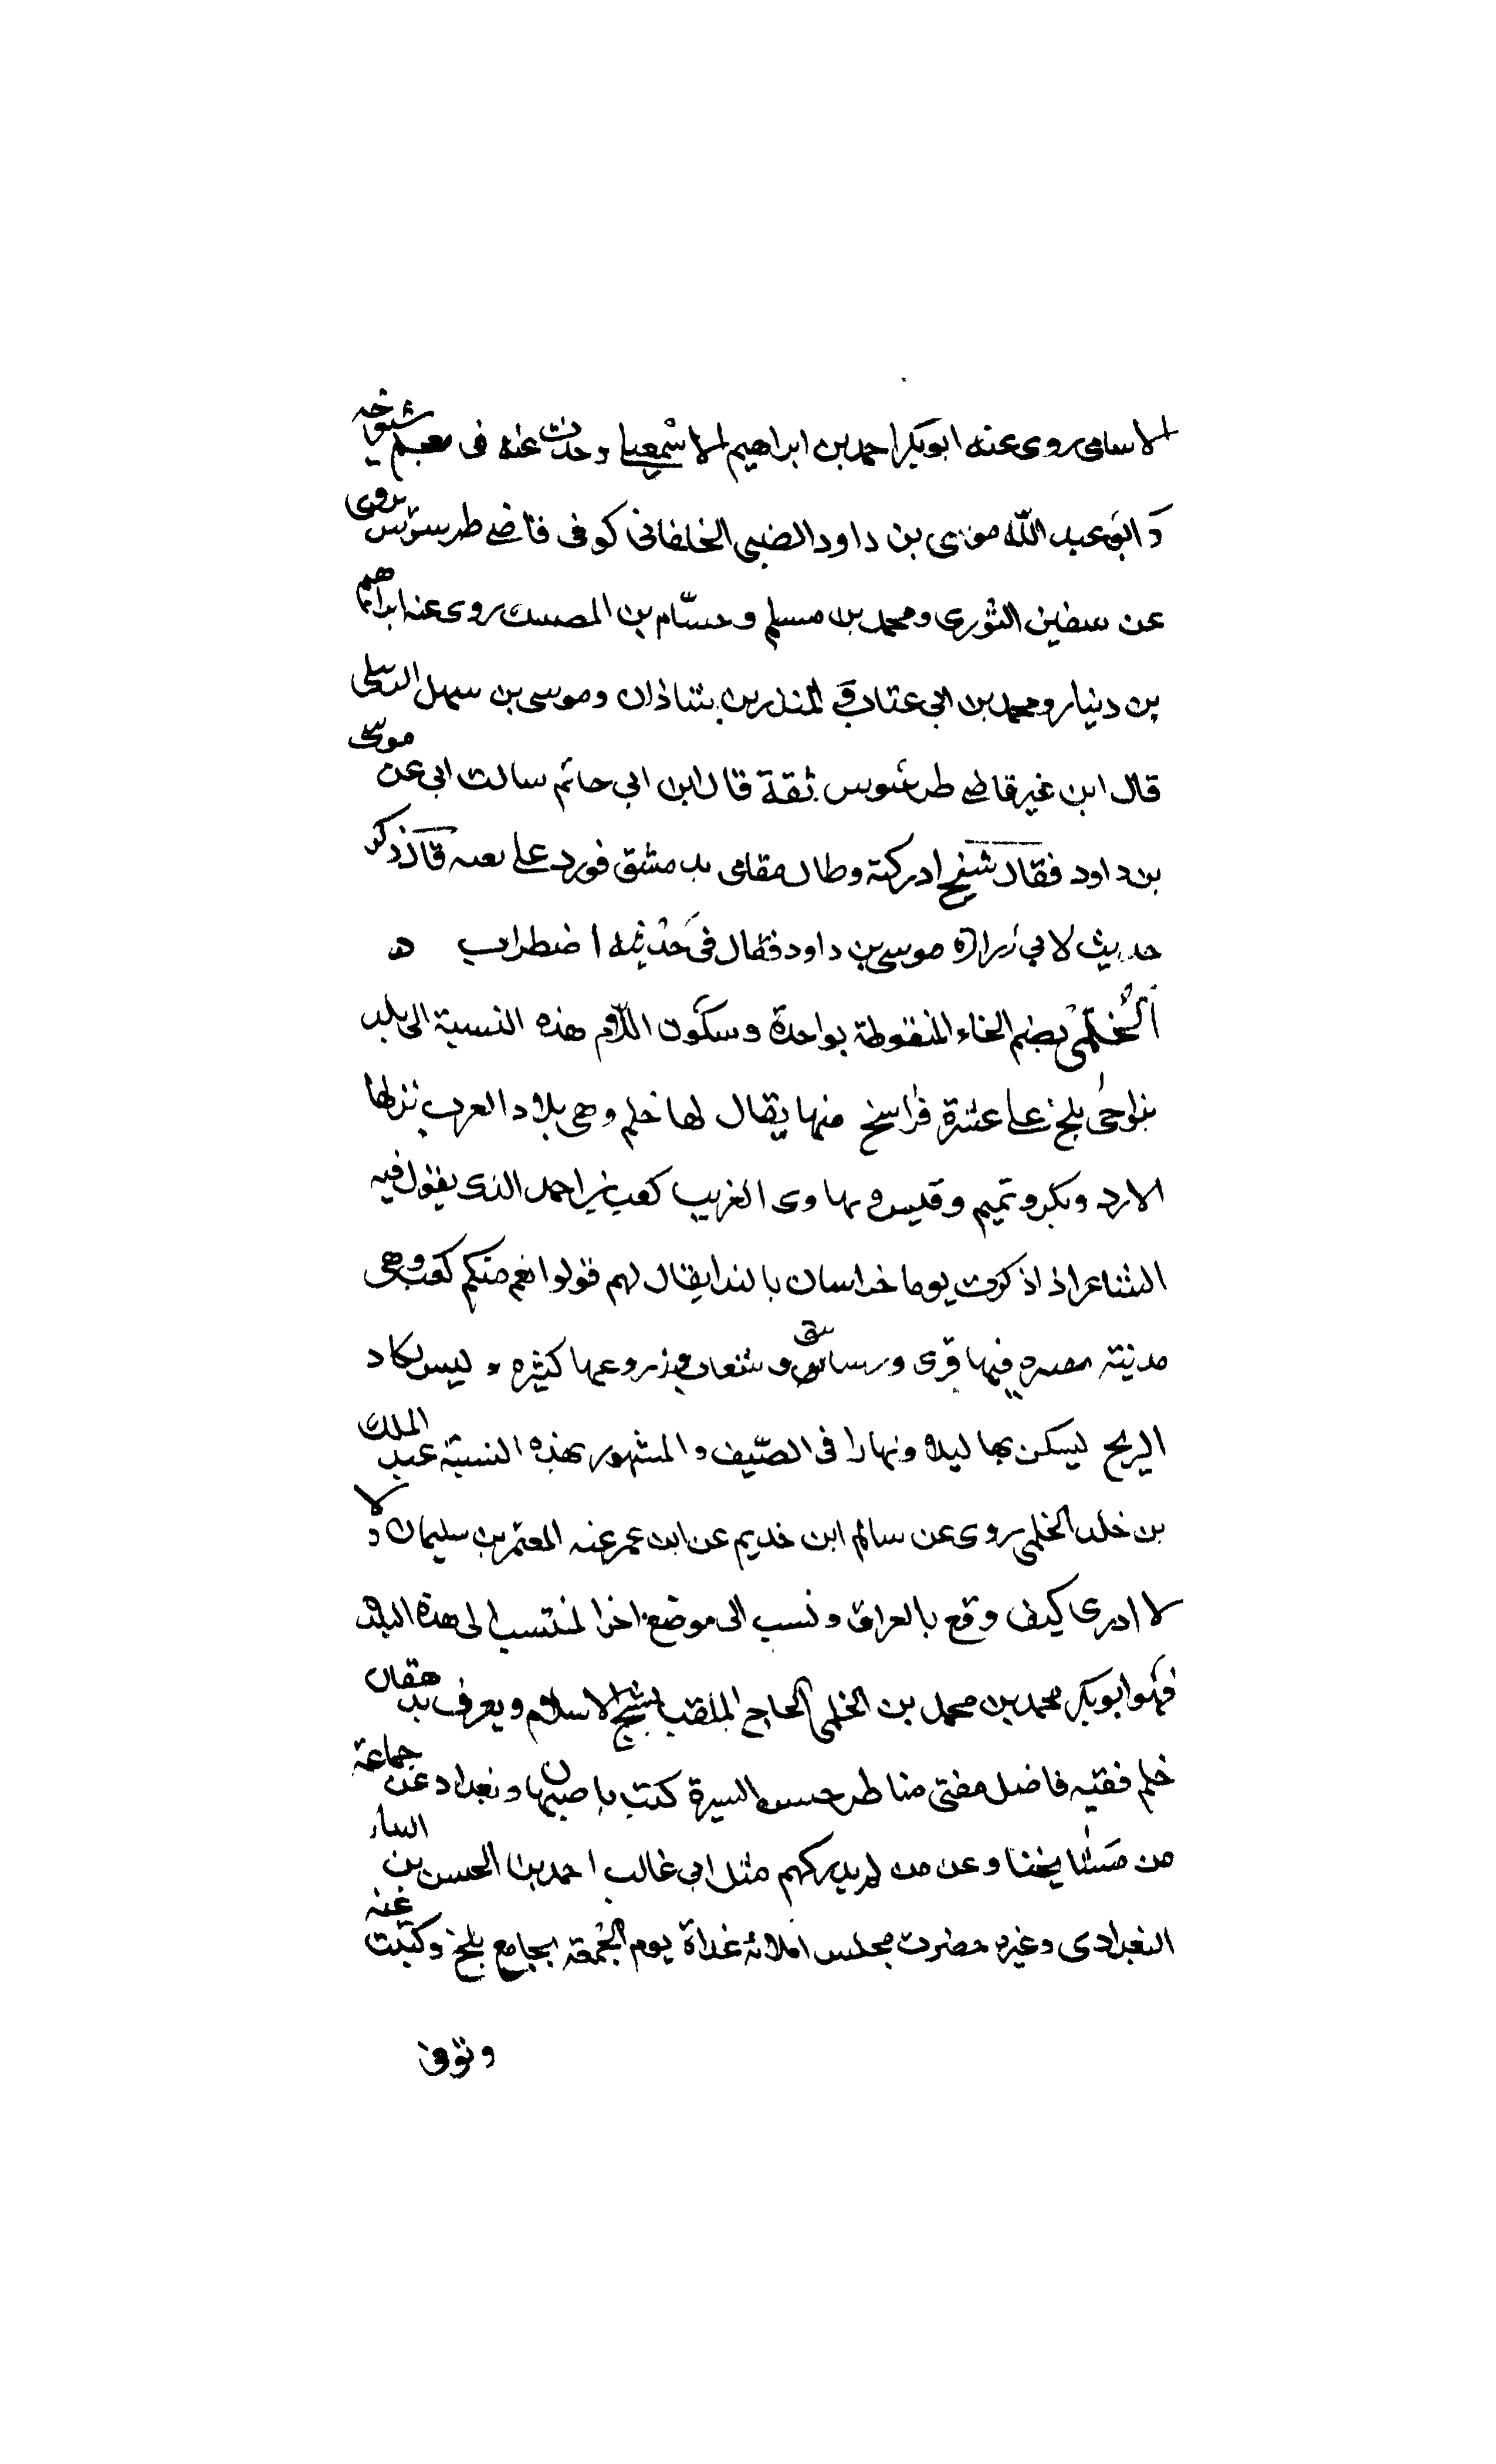 الاسامى روى عنه ابوبكر احمد بن ابراهيم الاسمعيلي وحدث عنه فى معجم شيوخه
وابو عبد الله موسى بن داود الضبى الخلقانى كوفى قاضے طرسوس يروى
عن سفين الثورى ومحمد بن مسلم وحسام بن المصك روى عنه ابراهيم
بن دينار ومحمد بن ابى عتاب و المنذر بن شاذان وموسى بن سهل الرملى
قال ابن غير قاضے طرسوس ثقة قال ابن ابي حاتم سالت ابي عن موسى
بن داود فقال شيخ ادركته وطال مقامى بدمشق فورد على نعيه قال ذكر
حديث لابي زرارة موسى بن داود فقال فى حديثه اضطراب ه
الخُلْمى بضم الخاء المنقوطة بواحدة وسكون اللام هذه النسبة الى بلد
بنواحى بلخ على عشرة فراسخ منها يقال لها خلم وهى بلاد العرب نزلها
الازد وبكر وتميم وقيس وبها وى الغريب كعب بن احمد الذى يقول فيه
الشاعر اذ اذكرت يوما خراسان بالندا يقال لهم قولوا نعم منكم كعب وهى
مدينة فيها قرى ورساتيق وشعاب وزروعها كثيره وليس لكاد
الريح ليسكن بها ليلا ونهارا فى الصّيف والمشهور بهذه النسبة عبد الملك
بن خلد الخلمى روى عن سالم ابن خديم عن ابن عمر عنه المعتمر بن سليمان ولا
لا ادرى كيف وقع بالعراق ونسب الى موضع اخر المنتسب الى هذه البلد
فهو ابوبكر محمد بن محمد بن الخلمى الحاج الملقب بشيخ الاسلام ويعرف بدهقان
خلم فقيه فاضل مفتى مناظر حسن السيرة كتب باصبهان وبغداد عن جماعة
من مشايخنا وعن من لم يدركهم مثل ابى غالب احمد بن الحسن بن البناء
البغدادى وغيره حضرت مجلس املائه غداة يوم الجمعة بجامع بلخ وكتبت عنه
وتوفى